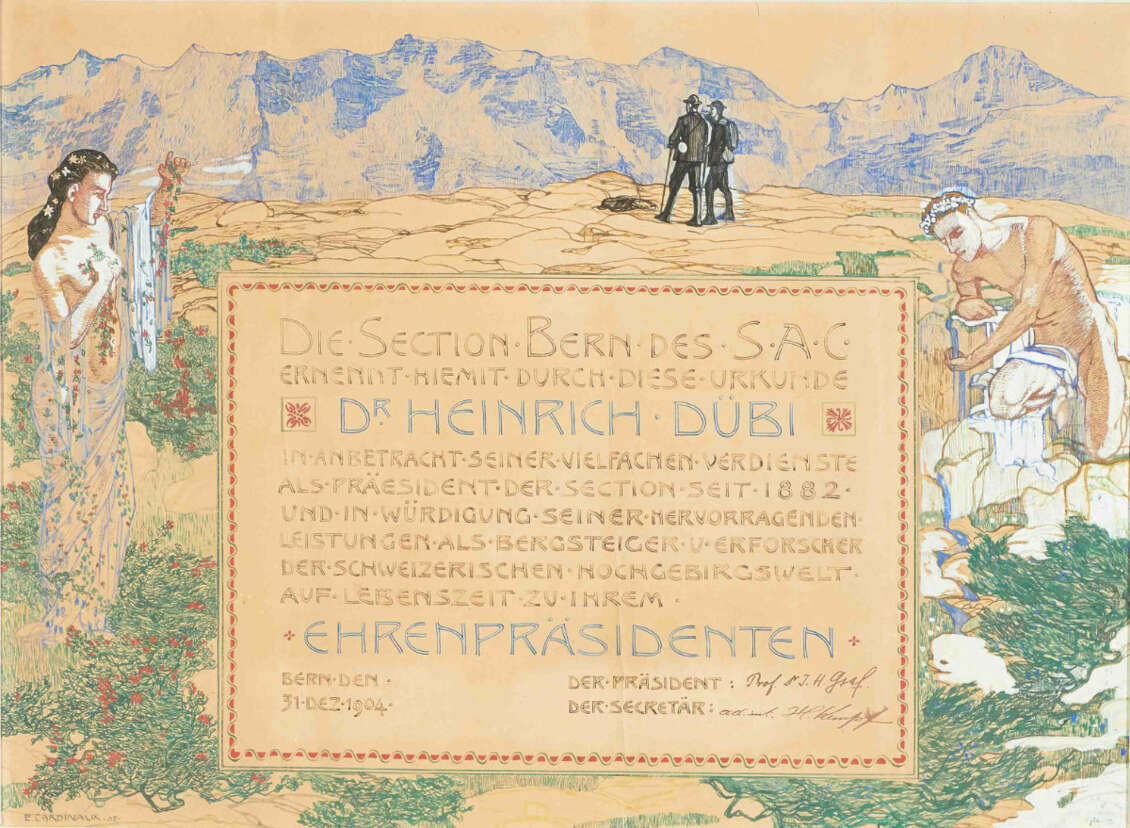 DIE·SECTION·BERN·DES·S·A·C·
ERNENNT·HIEMIT·DURCH·DIESE·URKUNDE
DR HEINRICH·DÜBI
IN·ANBETRACHT·SEINER·VIELFACHEN·VERDIENSTE
ALS·PRÄESIDENT·DER·SECTION·SEIT·1882·
UND·IN·WÜRDIGUNG·SEINER·HERVORRAGENDEN·
LEISTUNGEN·ALS·BERGSTEIGER·U·ERFORSCHER
DER·SCHWEIZERISCHEN·HOCHGEBIRGSWELT·
AUF·LEBENSZEIT·ZU·IHREM·
EHRENPRÄSIDENTEN
BERN·DEN·
31·DEZ·1904·
DER·PRÄSIDENT: Prof. Dr. J. H. Graf.
DER·SECRETÄR:
E. CARDINAUX